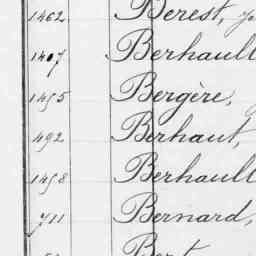 1462 Berest,
1407 Berhault
1495 Bergère,
492 Berhaut,
1498 Berhault
711 Bernard,